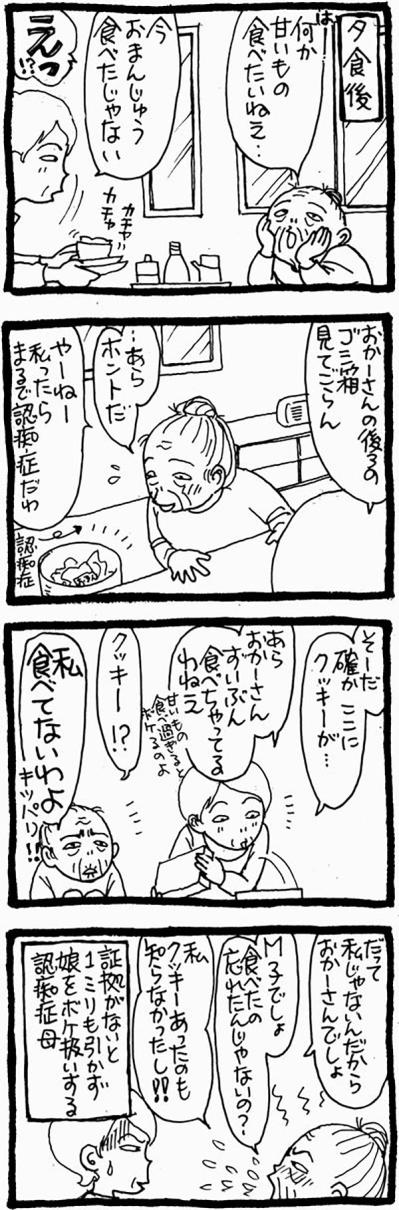 夕食後
は…
何か
甘いもの
食べたいねえ…
今
おまんじゅう
食べたじゃない
えっ!?
カチャ
カチャ
おかーさんの後ろの
ゴミ箱
見てごらん
…あら
ホントだ
やーねー
私ったら
まるで認痴症だわ
認痴症
そーだ
確かここに
クッキーが…
あら
おかーさん
ずいぶん
食べちゃってる
わねえ
甘いもの
食べ過ぎると
ボケるのよ
クッキー!?
私
食べてないわよ
キッパリ!!
だって
私じゃないんだから
おかーさんでしょ
M子でしょ
食べたの
忘れたんじゃないの?
私
クッキーあったのも
知らなかったし!!
証拠がないと
1ミリも引かず
娘をボケ扱いする
認痴症母